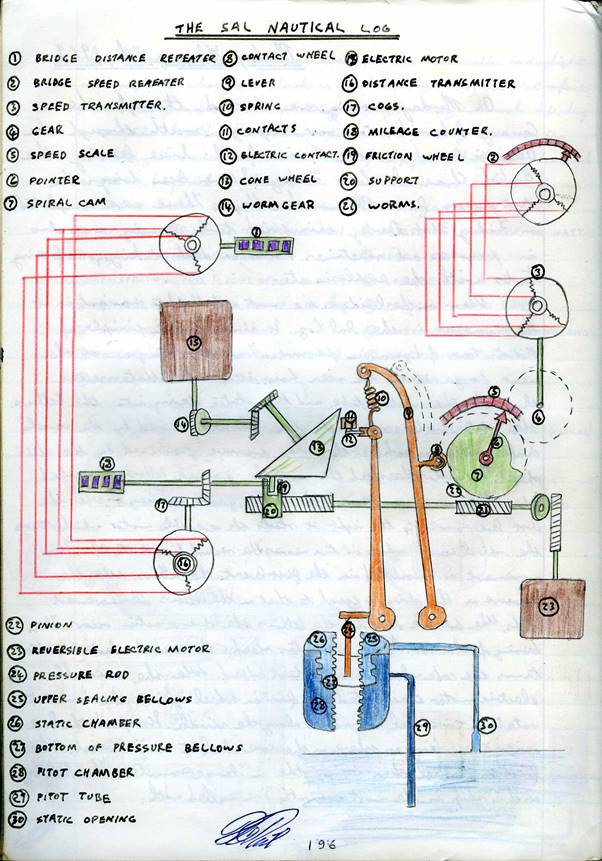 THE SAL NAUTICAL LOG
1 BRIDGE DISTANCE REPEATER
2 BRIDGE SPEED REPEATER
3 SPEED TRANSMITTER.
4 GEAR
5 SPEED SCALE
6 POINTER
7 SPIRAL CAM
8 CONTACT WHEEL
9 LEVER
10 SPRING
11 CONTACTS
12 ELECTRIC CONTACT.
13 CONE WHEEL
14 WORM GEAR
15 ELECTRIC MOTOR
16 DISTANCE TRANSMITTER
17 COGS.
18 MILEAGE COUNTER.
19 FRICTION WHEEL
20 SUPPORT
21 WORMS.
2
1
3
15
5
10
9
4
14
11
12
13
6
8
7
18
19
22
17
20
21
16
23
24
26
25
27
28
29
30
22 PINION
23 REVERSIBLE ELECTRIC MOTOR
24 PRESSURE ROD
25 UPPER SEALING BELLOWS
26 STATIC CHAMBER
27 BOTTOM OF PRESSURE BELLOWS
28 PITOT CHAMBER
29 PITOT TUBE
30 STATIC OPENING
196